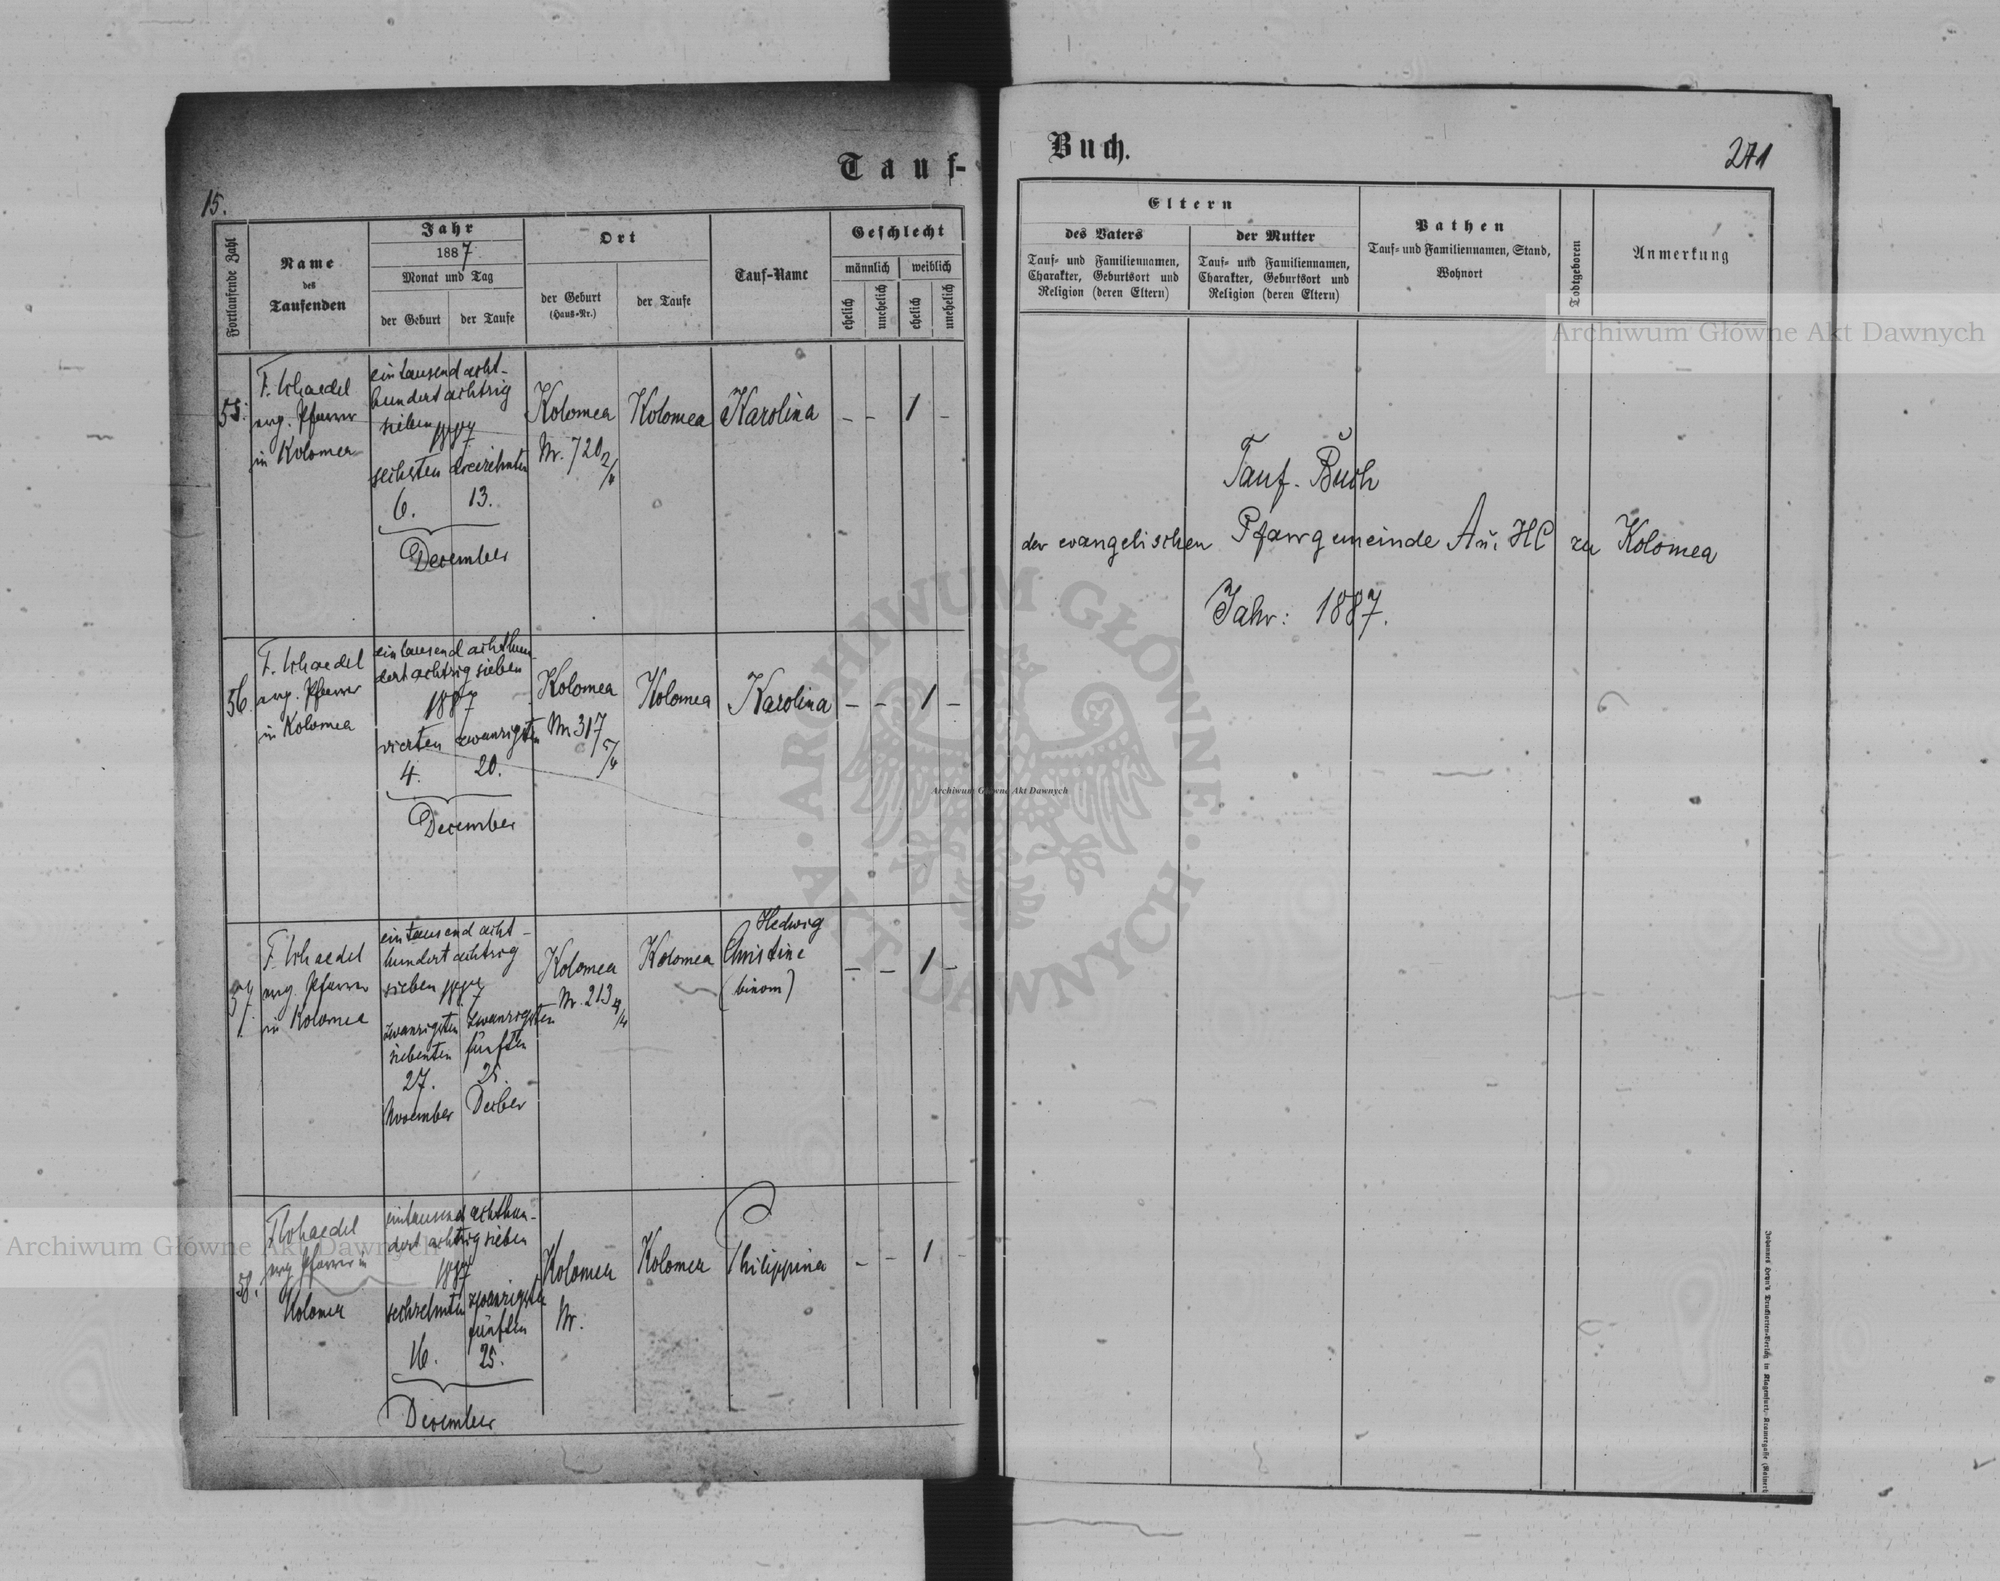 Tauf-
15.
Fortlaufende Zahl
Name
des
Taufenden
Jahr
1887
Monat und Tag
der Geburt
der Taufe
Ort
der Geburt
(Haus-Nr.)
der Taufe
Tauf-Name
Geschlecht
männlich
weiblich
ehelich
unehelich
ehelich
unehelich
55.
evg. Pfarrer
in Kolomea
ein tausend acht-
hundert achtzig
sieben 1887
sechsten dreizehnten
6. 13.
December
Kolomea
Nr. 720 2/4
Kolomea
Karolina
– – 1 –
56.
evg. Pfarrer
in Kolomea
ein tausend achthun
dert achtzig sieben
1887
vierten zwanzigsten
4. 20.
December
Kolomea
Nr. 317 5/4
Kolomea
Karolina
– – 1 –
57.
evg. Pfarrer
in Kolomea
ein tausend acht-
hundert achtzig
sieben 1887
zwanzigsten zwanzigsten
siebenten fünften
27. 25.
November Decber
Kolomea
Nr. 213
Kolomea
Hedwig
Christine
(binom)
– – 1 –
58.
evg Pfarrer in
Kolomea
ein tausend achthun-
dert achtzig sieben
1887
sechzehnten zwanzigsten
fünften
16. 25.
December
Kolomea
Nr.
Kolomea
Philippina
– – 1 –
Buch.
271
Eltern
des Vaters
Tauf- und Familiennamen,
Charakter, Geburtsort und
Religion (deren Eltern)
der Mutter
Tauf- und Familiennamen,
Charakter, Geburtsort und
Religion (deren Eltern)
Pathen
Tauf- und Familiennamen, Stand,
Wohnort
Todtgeboren
Anmerkung
Tauf-Buch
der evangelischen Pfarrgemeinde A u. HC zu Kolomea
Jahr: 1887.
Archiwum Główne Akt Dawnych
Archiwum Główne Akt Dawnych
Archiwum Główne Akt Dawnych
ARCHIWUM GŁÓWNE
AKT DAWNYCH